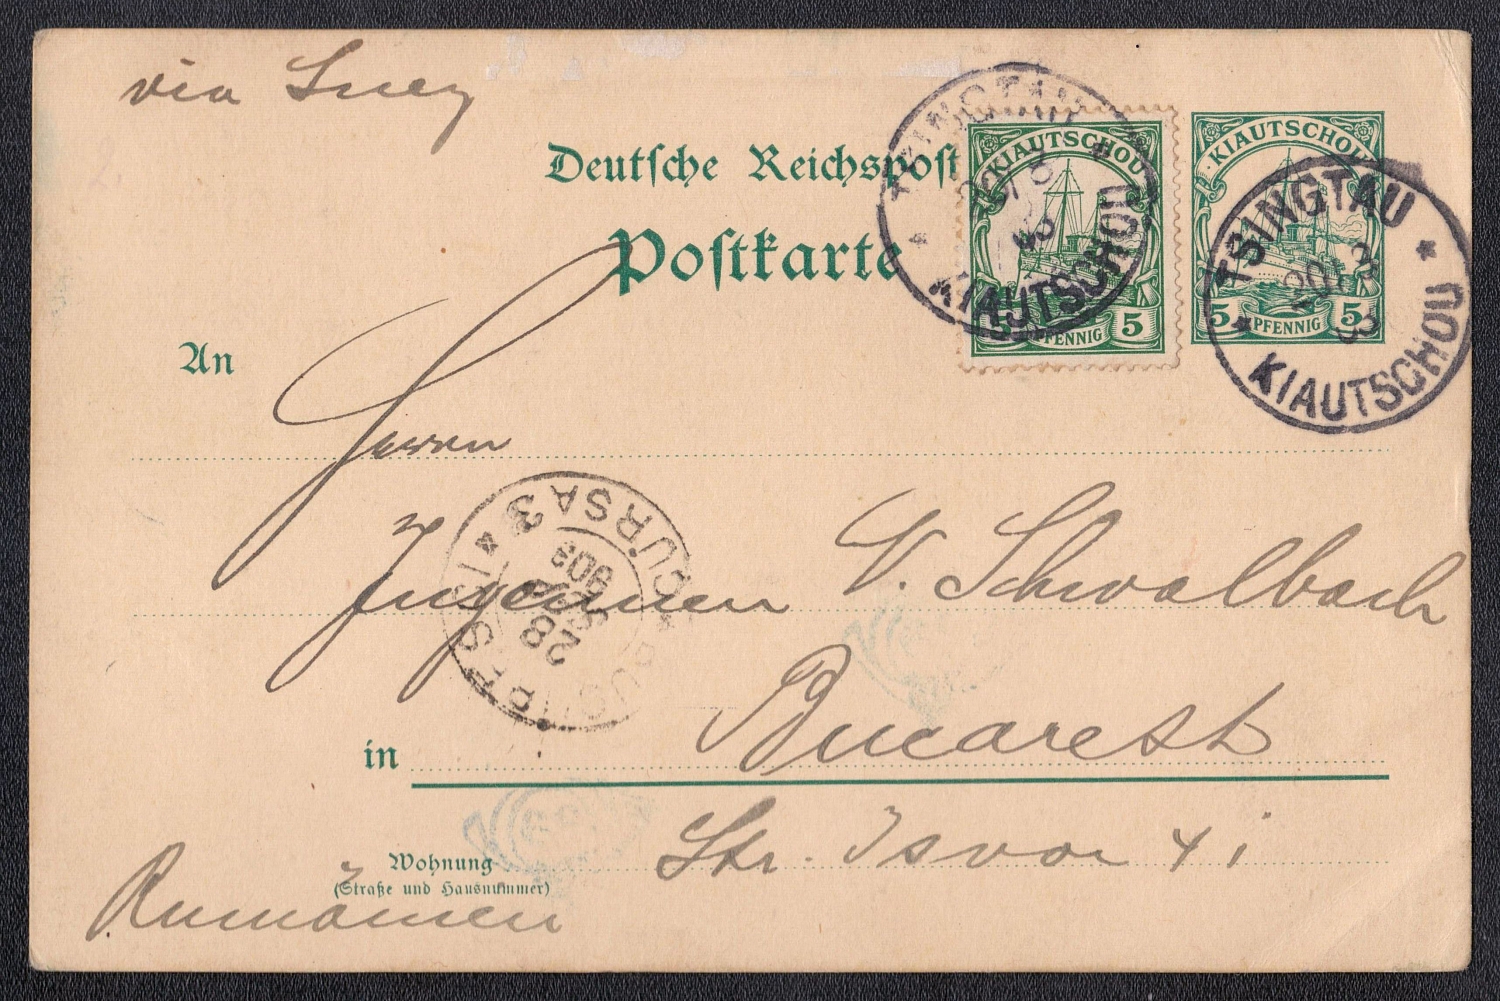 via Suez
Deutsche Reichspost
Postkarte
KIAUTSCHOU
5 PFENNIG 5
KIAUTSCHOU
5 PFENNIG 5
TSINGTAU
KIAUTSCHOU
TSINGTAU
20/3
KIAUTSCHOU
An
Herrn
V. Schwalbach
CURSA 3
28
903
in Bucarest
Wohnung
(Straße und Hausnummer)
Str. Isvor
Rumänien